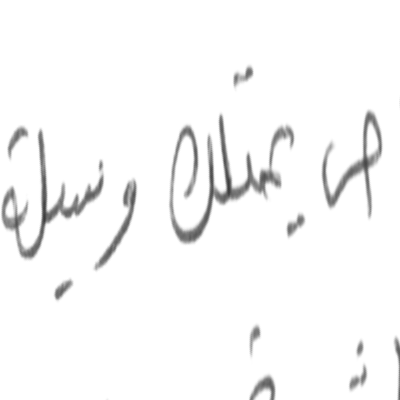 من يمتلك وسيلة